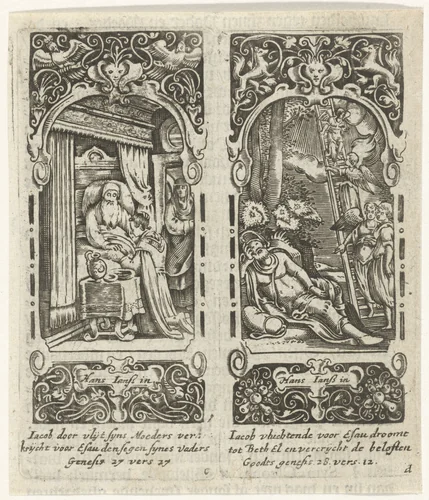 Hans Ianss in
Iacob door vlijt syns Moeders ver:
krijcht voor Esau den segen synes vaders
Genesis 27 vers 27
c
Hans Ianss in
Iacob vluchtende voor Esau droomt
tot Beth El en vercrycht de beloften
Goodts genesis 28. vers. 12.
d